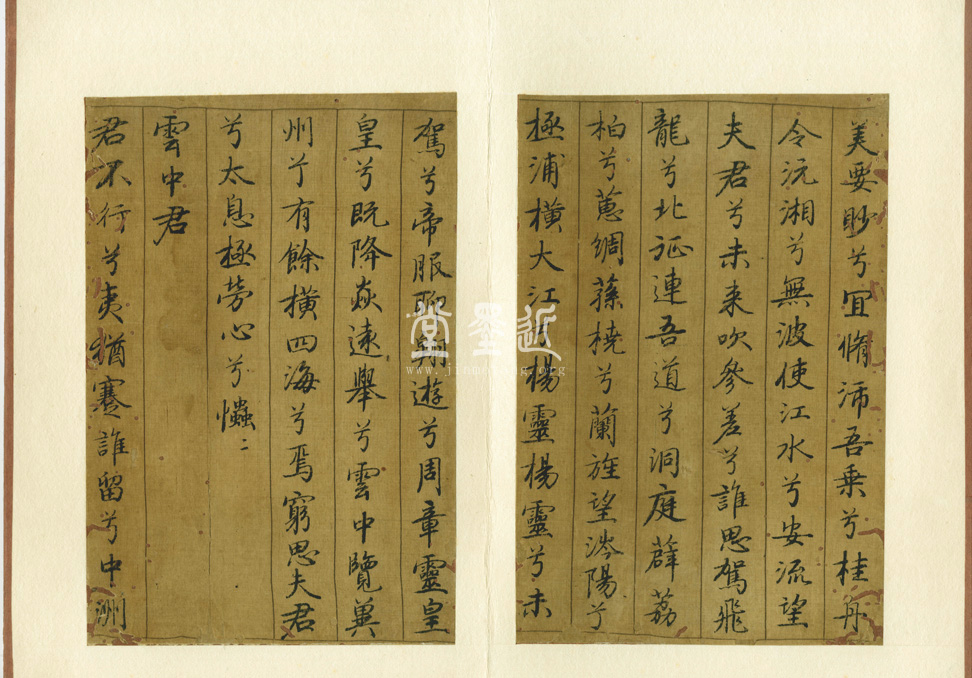 駕兮帝服聊翱遊兮周章靈皇
皇兮既降焱遠舉兮雲中覽冀
州兮有餘橫四海兮焉窮思夫君
兮太息極勞心兮𢥞〻
雲中君
君不行兮夷猶蹇誰留兮中洲
美要眇兮宜脩沛吾乘兮桂舟
令沅湘兮無波使江水兮安流望
夫君兮未来吹參差兮誰思駕飛
龍兮北征連吾道兮洞庭薜荔
柏兮蕙綢蓀橈兮蘭旌望涔陽兮
極浦橫大江兮楊靈楊靈兮未
堂墨近
www.jinmotang.org